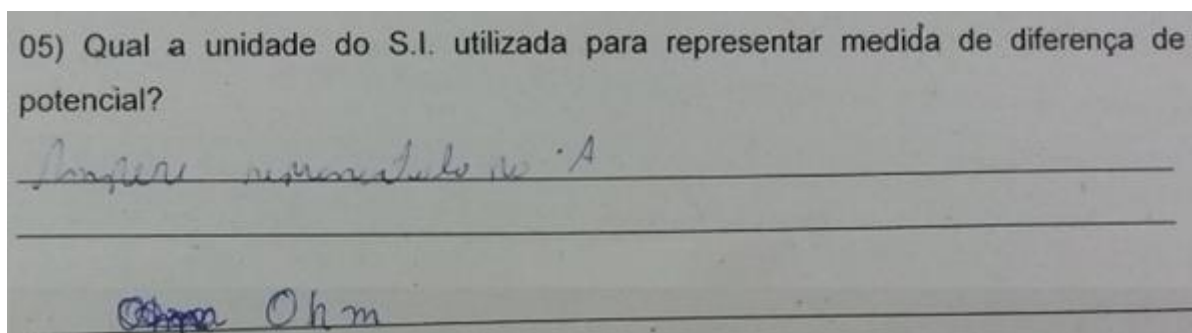 05) Qual a unidade do S.I. utilizada para representar medida de diferença de
potencial?
Ampere representado no A
Ohm